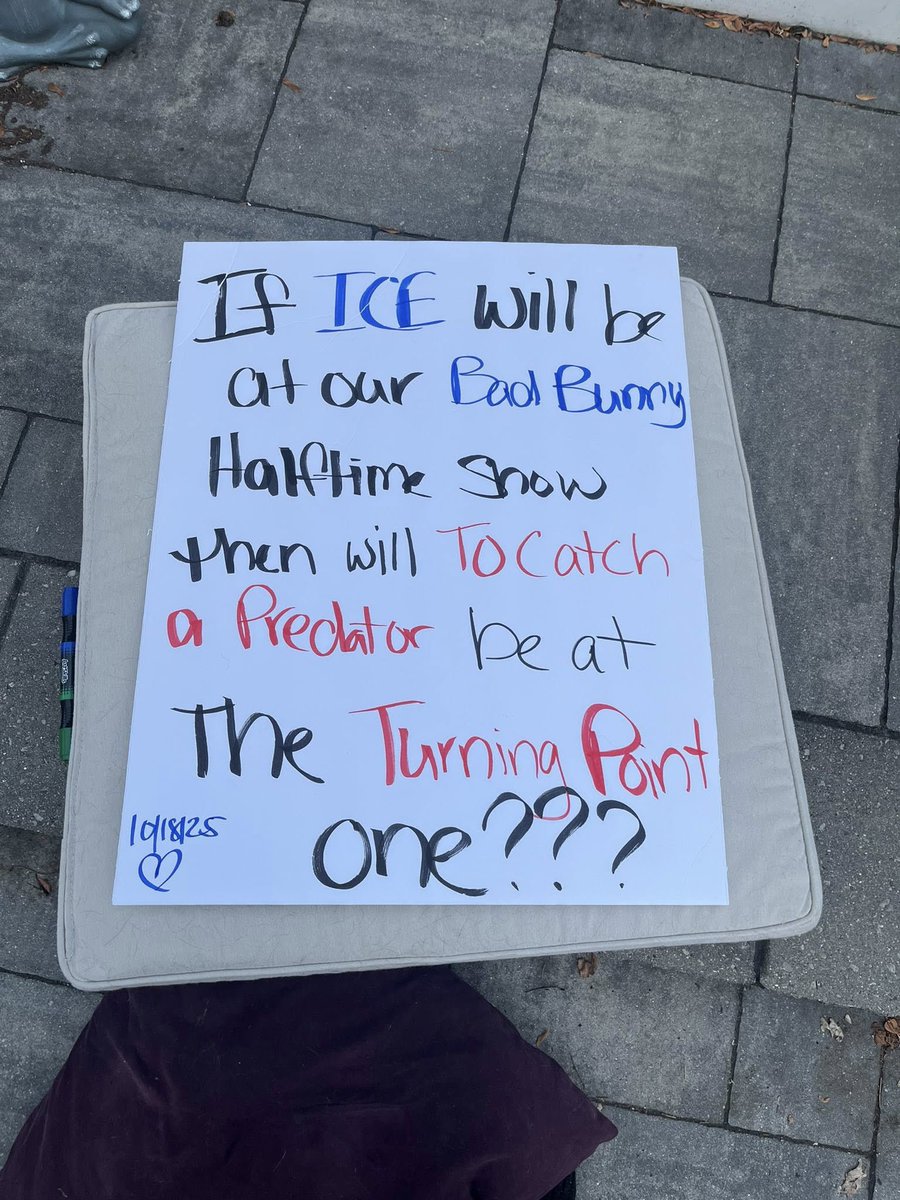 If ICE will be
at our Bad Bunny
Halftime Show
then will To Catch
a Predator be at
The Turning Point
one???
10/18/25